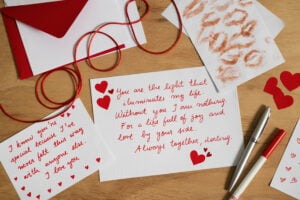 You are the light that
illuminates my life
Without you I am nothing.
For a life full of joy and
love by your side.
Always together, darling.
I know you're
special because I've
never felt this way
with anyone else
I love you